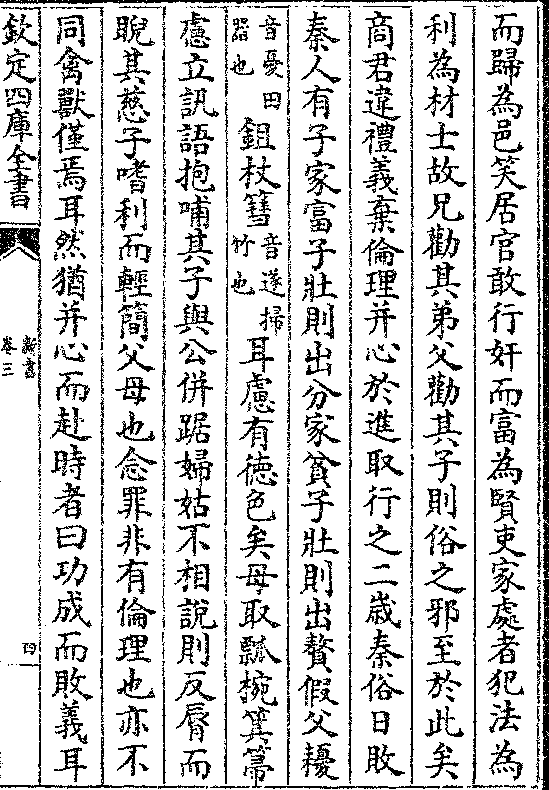 而歸為邑笑居官敢行奸而富為賢吏家處者犯法為
利為材士故兄勸其弟父勸其子則俗之邪至於此矣
商君違禮義棄倫理并心於進取行之二歲秦俗日敗
秦人有子家富子壯則出分家貧子壯則出贅假父耰
音憂田器也鉏杖篲音遂掃竹也耳慮有德色矣母取瓢椀箕箒
慮立訊語抱哺其子與公併踞婦姑不相說則反脣而
睨其慈子嗜利而輕簡父母也念罪非有倫理也亦不
同禽獸僅焉耳然猶并心而赴時者曰功成而敗義耳
欽定四庫全書
新書
卷三
四